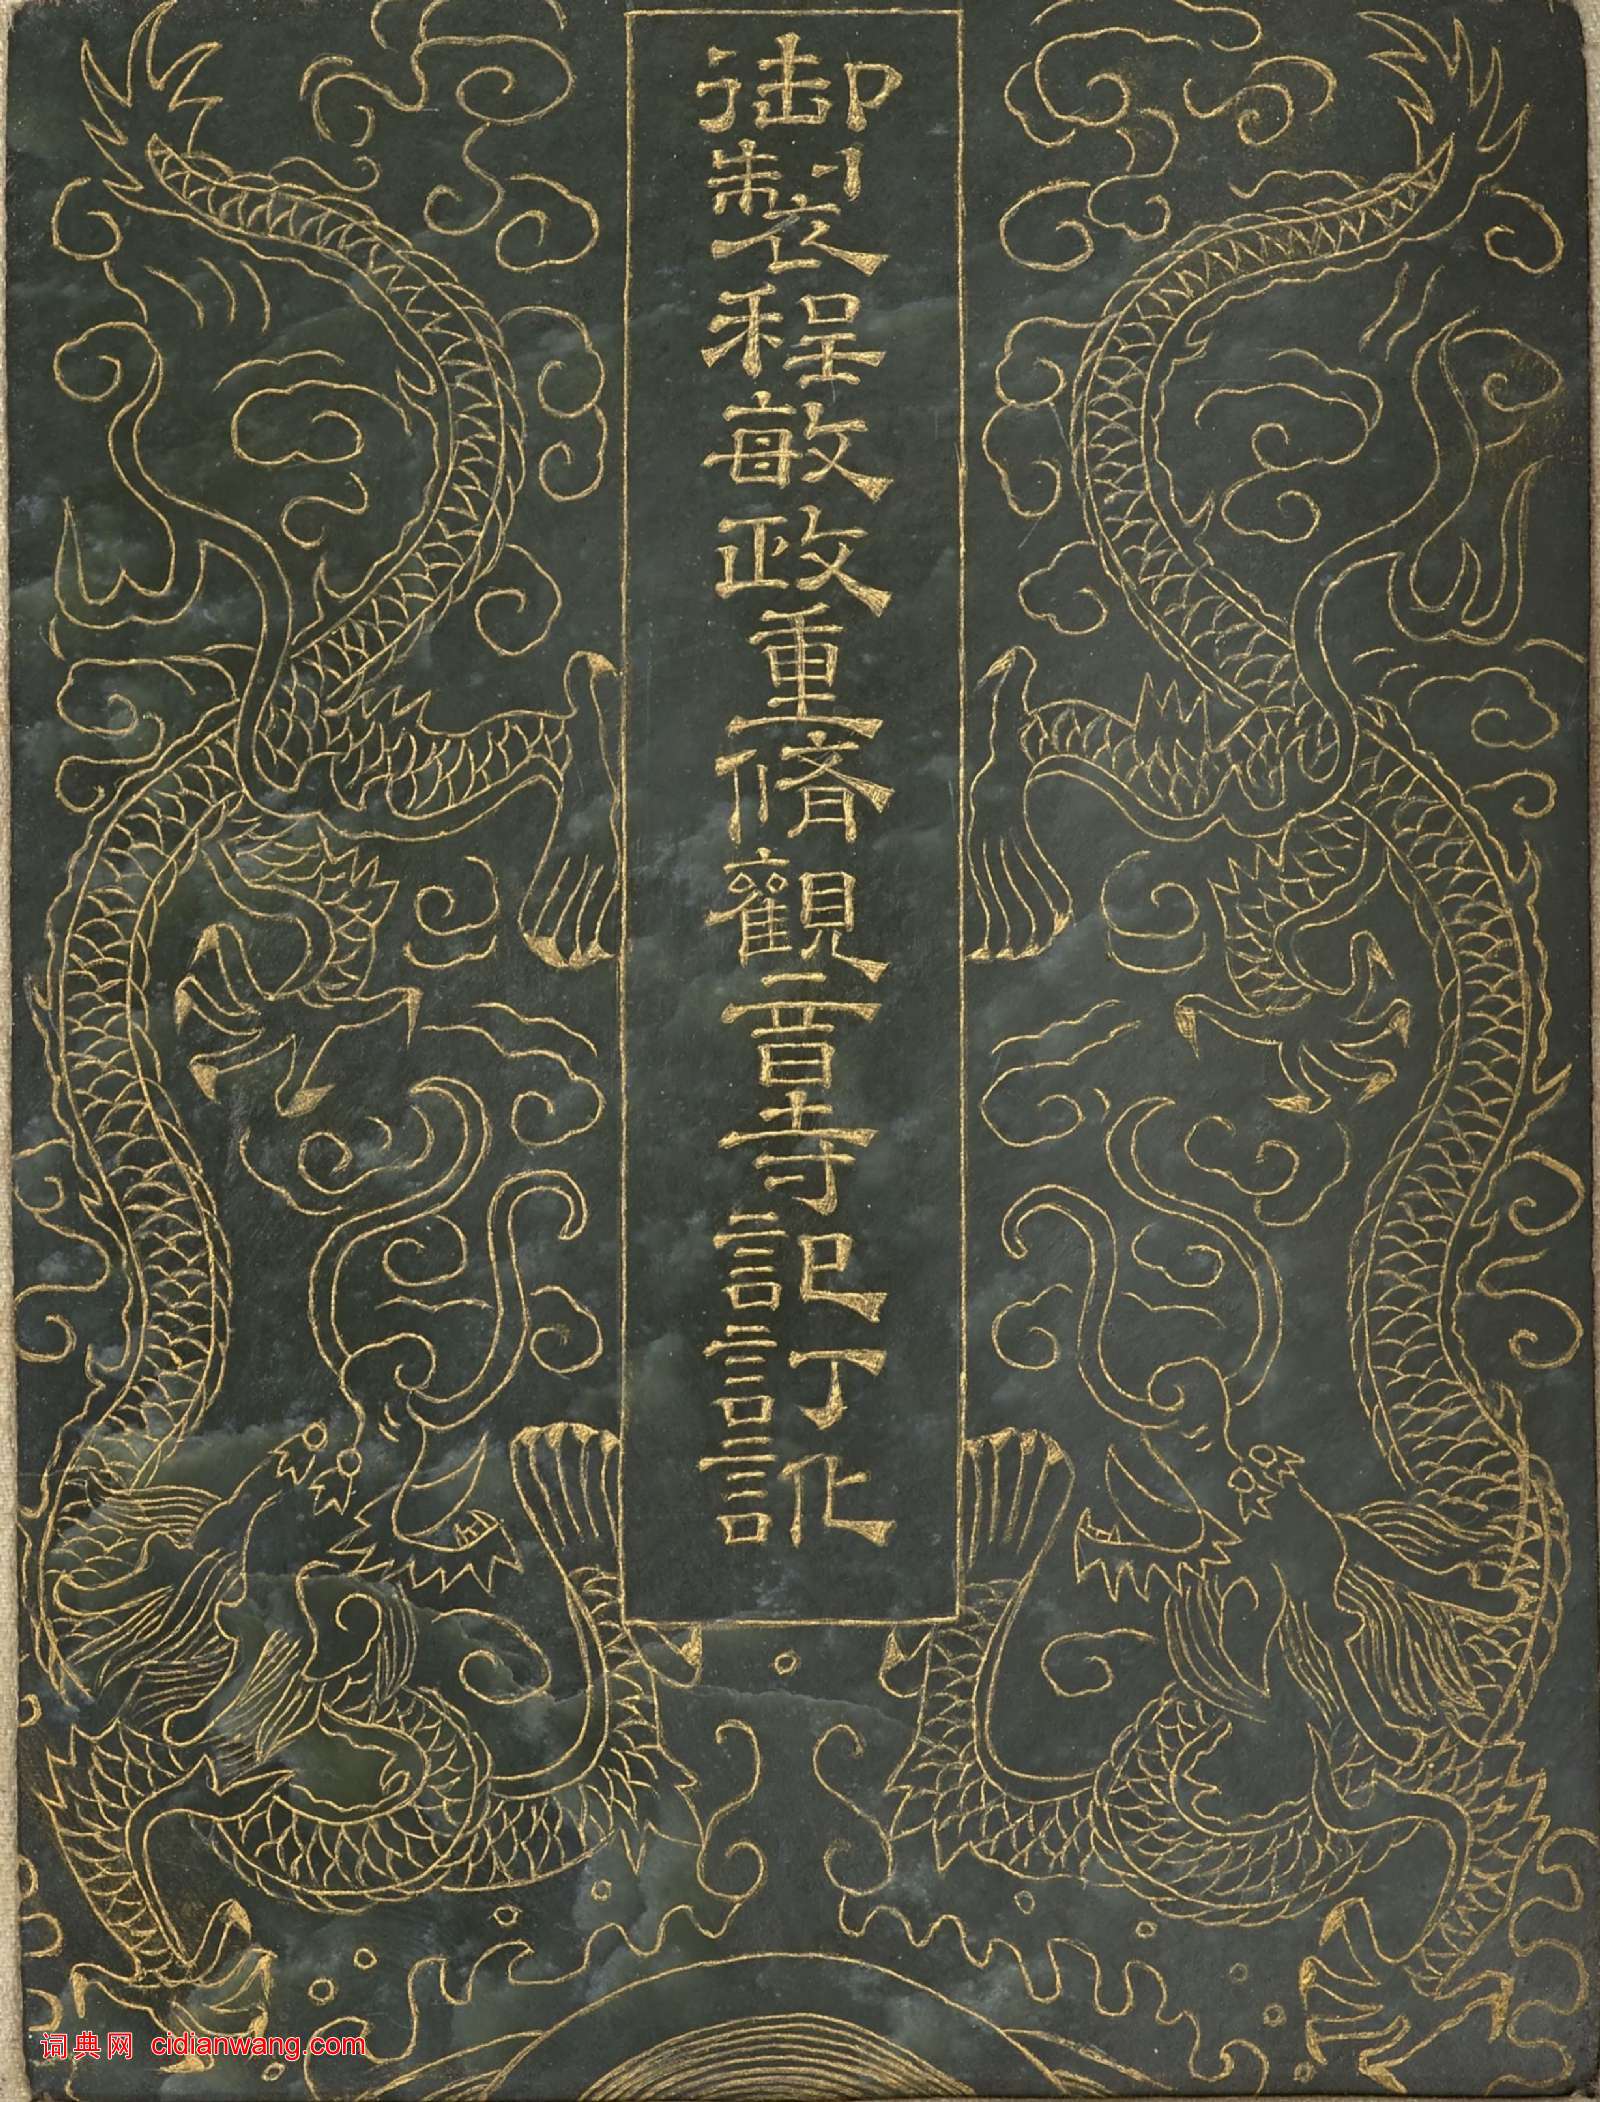 御製程敏政重脩觀音寺記訂訛
词典网 cidianwang.com